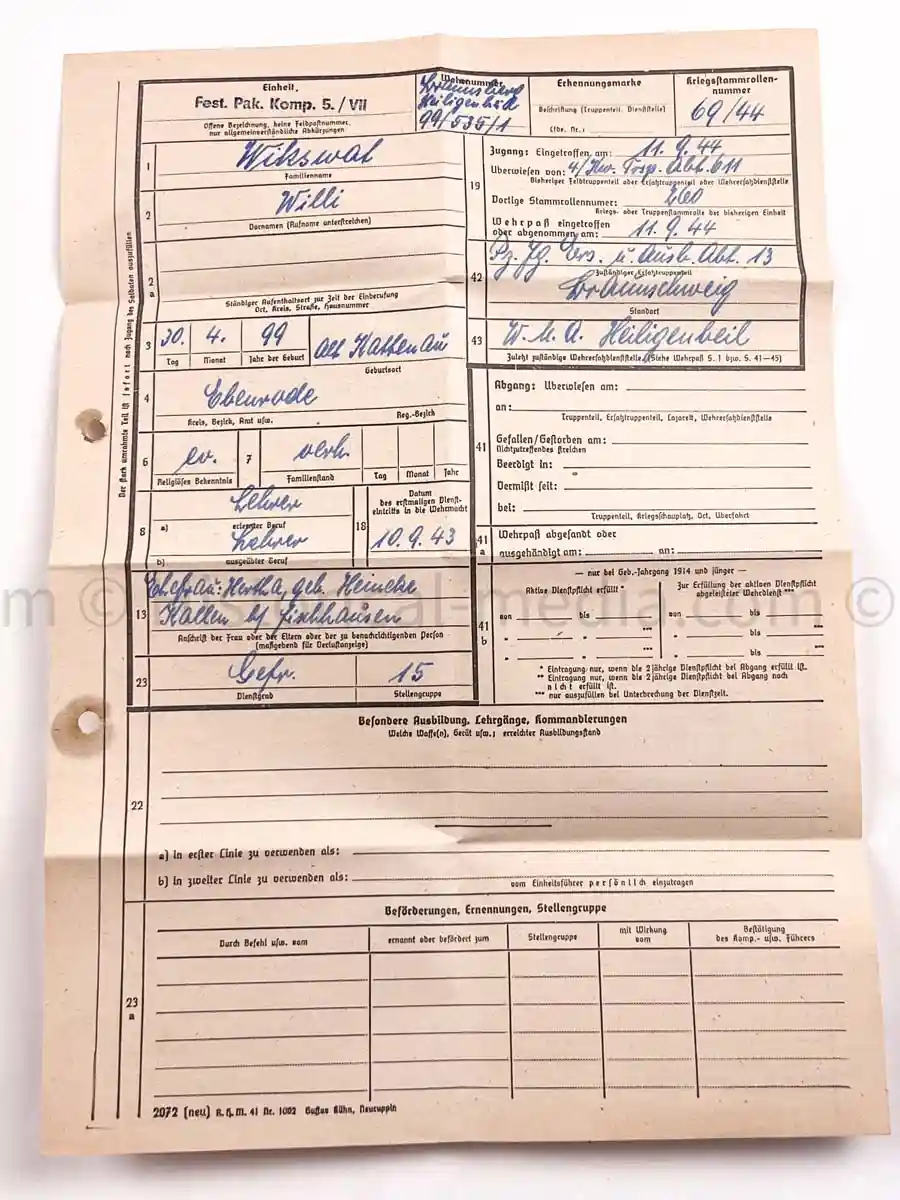 Einheit.
Fest. Pak. Komp. 5./VII
Offene Bezeichnung, keine Feldpostnummer,
nur allgemeinverständliche Abkürzungen
Wehrnummer
Braunsberg
Heiligenbeil
99/535/1
Erkennungsmarke
Beschriftung (Truppenteil, Dienststelle)
Lfde. Nr.:
Kriegsstammrollen-
nummer
69/44
Der stark umrahmte Teil ist sofort nach Zugang des Soldaten auszufüllen
1
Wikswat
Familienname
2
Willi
Vornamen (Rufname unterstreichen)
2
a
Ständiger Aufenthaltsort zur Zeit der Einberufung
Ort, Kreis, Straße, Hausnummer
3
30. 4. 99
Alt Kattenau
Tag Monat Jahr der Geburt
Geburtsort
4
Ebenrode
Kreis, Bezirk, Amt usw. Reg.-Bezirk
6
ev.
Religiöses Bekenntnis
7
verh.
Familienstand
Tag Monat Jahr
8
Lehrer
a) erlernter Beruf
Lehrer
b) ausgeübter Beruf
18
Datum
des erstmaligen Dienst-
eintritts in die Wehrmacht
10.9.43
13
Ehefrau: Hertha, geb. Heincke
Kallen b/ Fischhausen
Anschrift der Frau oder der Eltern oder der zu benachrichtigenden Person
(maßgebend für Verlustanzeige)
23
Gefr.
Dienstgrad
15
Stellengruppe
19
Zugang: Eingetroffen am: 11.9.44
Überwiesen von: 4/Kw. Trsp. Abt. 611
Bisheriger Feldtruppenteil oder Ersatztruppenteil oder Wehrersatzdienststelle
Dortige Stammrollennummer: 260
Kriegs- oder Truppenstammrolle der bisherigen Einheit
Wehrpaß eingetroffen
oder abgenommen am: 11.9.44
42
Pz. Jg. Ers. u. Ausb. Abt. 13
Zuständiger Ersatztruppenteil
Braunschweig
Standort
43
W.M.A. Heiligenbeil
Zuletzt zuständige Wehrersatzdienststelle (Siehe Wehrpaß S. 1 bzw. S. 41–45)
41
Abgang: Überwiesen am:
an:
Truppenteil, Ersatztruppenteil, Lazarett, Wehrersatzdienststelle
Gefallen/Gestorben am:
Nichtzutreffendes streichen
Beerdigt in:
Vermißt seit:
bei:
Truppenteil, Kriegsschauplatz, Ort, Überfahrt
41
a
Wehrpaß abgesandt oder
ausgehändigt am: an:
41
b
— nur bei Geb.-Jahrgang 1914 und jünger —
Aktive Dienstpflicht erfüllt *
Zur Erfüllung der aktiven Dienstpflicht
abgeleisteter Wehrdienst ***
von bis von bis
" " *** " bis
" " *** " bis
* Eintragung nur, wenn die 2jährige Dienstpflicht bei Abgang erfüllt ist.
** Eintragung nur, wenn die 2jährige Dienstpflicht bei Abgang noch
nicht erfüllt ist.
*** nur auszufüllen bei Unterbrechung der Dienstzeit.
22
Besondere Ausbildung, Lehrgänge, Kommandierungen
Welche Waffe(n), Gerät usw.; erreichter Ausbildungsstand
a) in erster Linie zu verwenden als:
b) in zweiter Linie zu verwenden als:
vom Einheitsführer persönlich einzutragen
23
a
Beförderungen, Ernennungen, Stellengruppe
Durch Befehl usw. vom
ernannt oder befördert zum
Stellengruppe
mit Wirkung
vom
Bestätigung
des Komp.- usw. Führers
2072 (neu) R. H. M. 41 Nr. 1002 Gustav Kühn, Neuruppin